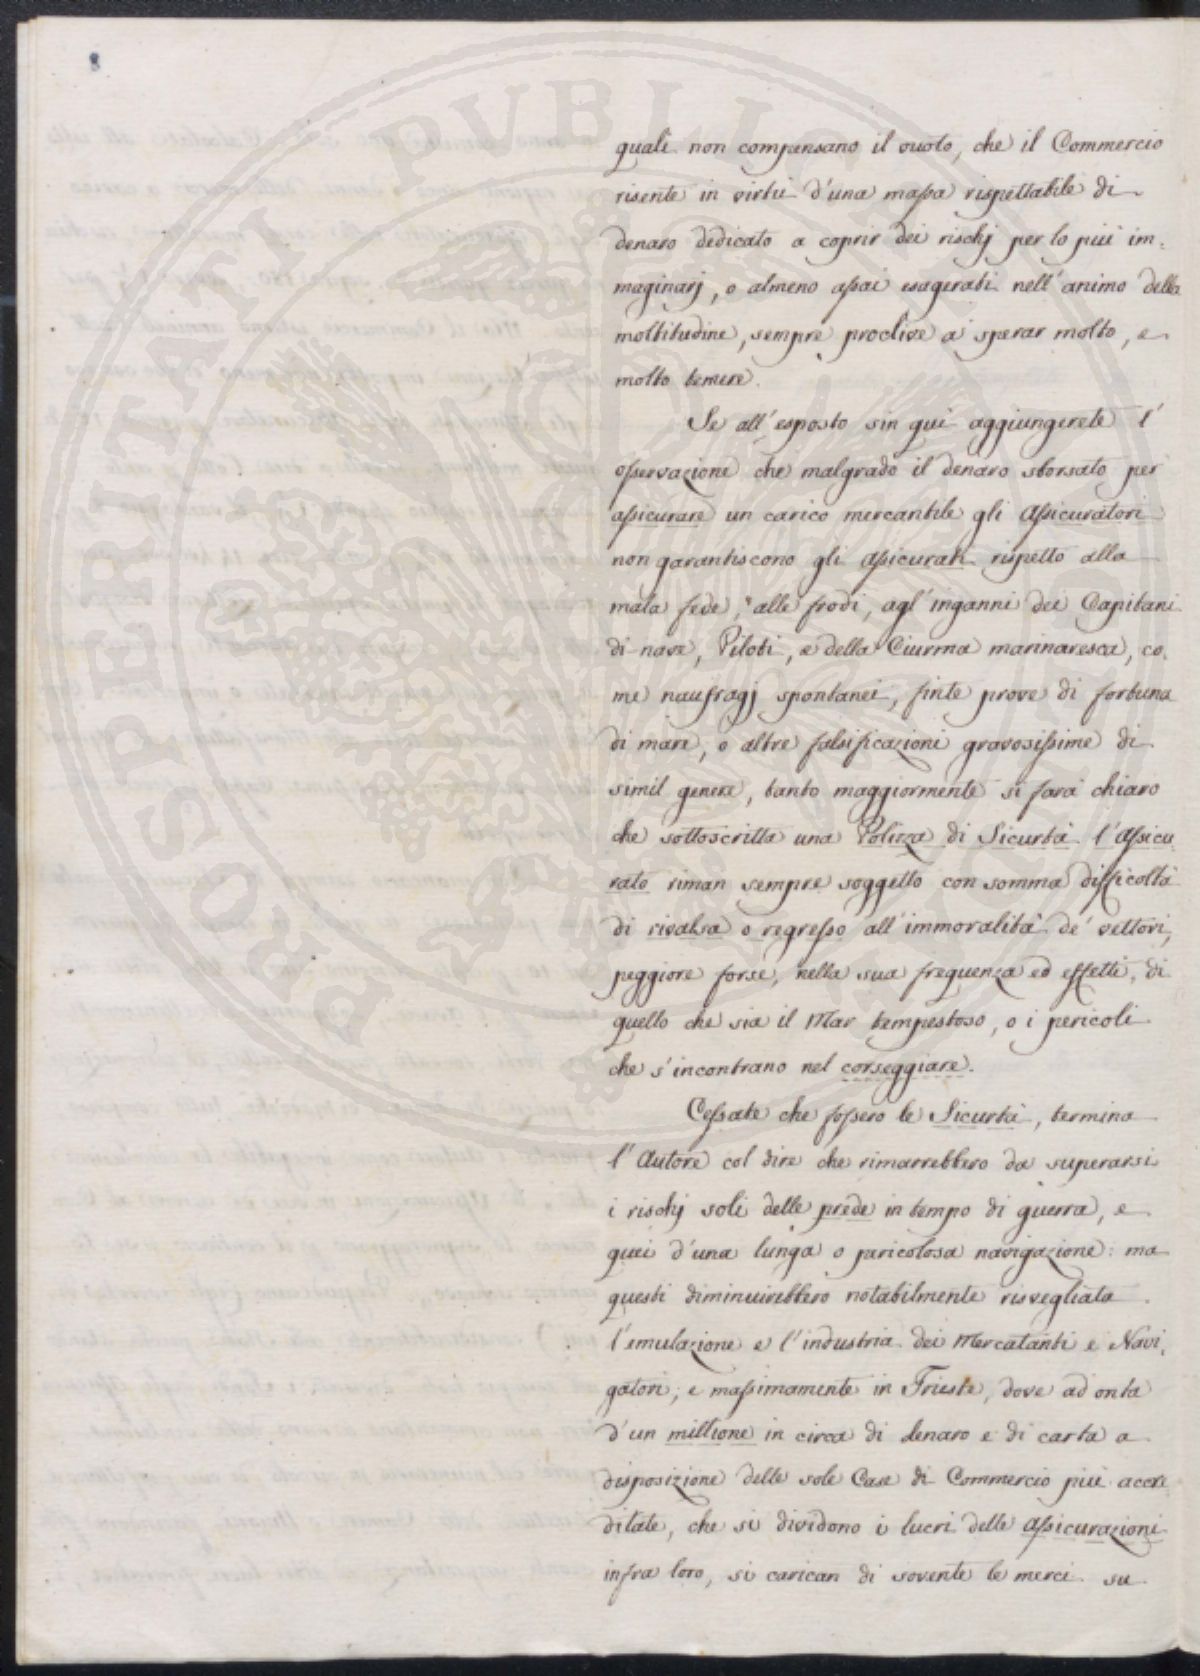 8
PROSPERITATI PUBLICAE
quali non compensano il vuoto, che il Commercio
risente in virtù d'una massa rispettabile di
denaro dedicato a coprir dei rischj per lo più im=
maginarj, o almeno assai esagerati nell'animo della
moltitudine, sempre proclive a sperar molto, e
molto temere.
Se all'esposto sin qui aggiungerete l'
osservazione che malgrado il denaro sborsato per
assicurare un carico mercantile gli Assicuratori
non garantiscono gli Assicurati rispetto alla
mala fede, alle frodi, agl'inganni dei Capitani
di nave, Piloti, e della Ciurma marinaresca, co=
me naufragj spontanei, finte prove di fortuna
di mare, o altre falsificazioni gravosissime di
simil genere, tanto maggiormente si farà chiaro
che sottoscritta una Polizza di Sicurtà l'Assicu=
rato riman sempre soggetto con somma difficoltà
di rivalsa o regresso all'immoralità de' vettori,
peggiore forse, nella sua frequenza ed effetti, di
quello che sia il Mar tempestoso, o i pericoli
che s'incontrano nel corseggiare.
Cessate che fossero le Sicurtà, termina
l'Autore col dire che rimarrebbero da superarsi
i rischj soli delle prede in tempo di guerra, e
quei d'una lunga o pericolosa navigazione: ma
questi diminuirebbero notabilmente risvegliata
l'emulazione e l'industria dei Mercatanti e Navi=
gatori; e massimamente in Trieste, dove ad onta
d'un millione in circa di denaro e di carta a
disposizione delle sole Case di Commercio più accre
ditate, che si dividono i lucri delle Assicurazioni
infra loro, si carican di sovente le merci su